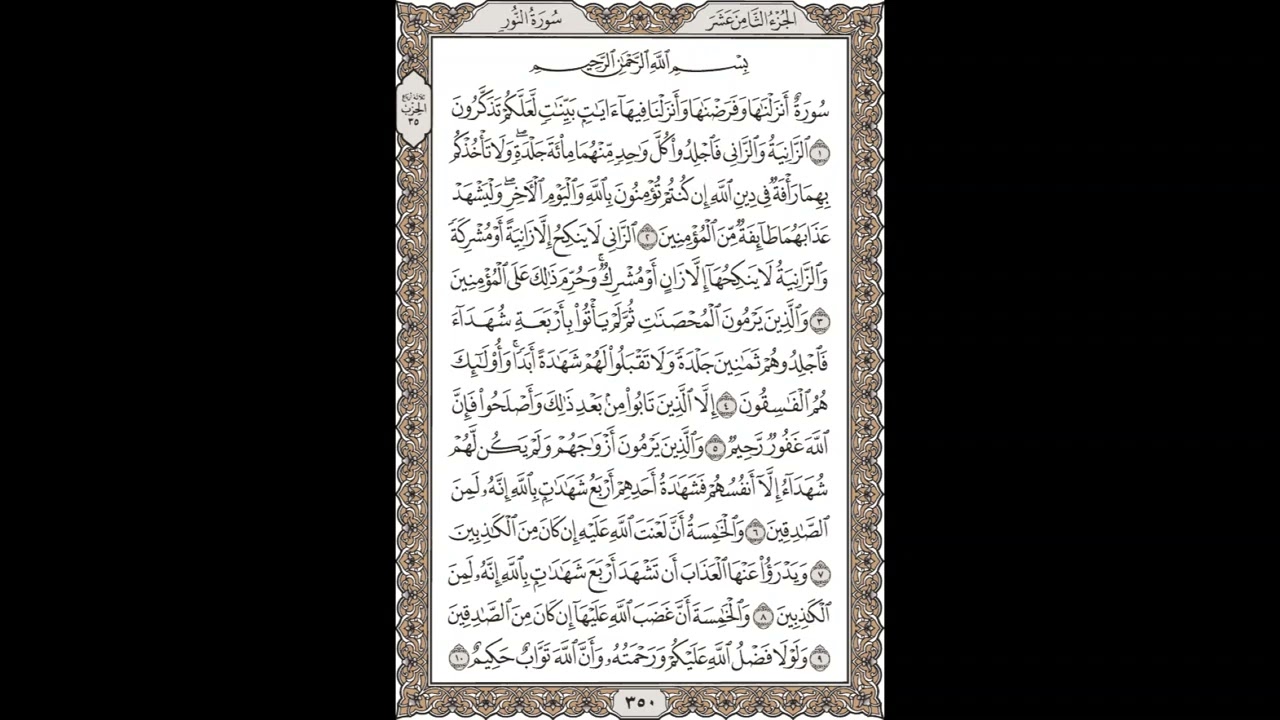 الجزء الثامن عشر
سورة النور
ثلاثة أرباع
الحزب
٣٥
بِسْمِ ٱللَّهِ ٱلرَّحْمَٰنِ ٱلرَّحِيمِ
سُورَةٌ أَنزَلْنَٰهَا وَفَرَضْنَٰهَا وَأَنزَلْنَا فِيهَآ ءَايَٰتٍۭ بَيِّنَٰتٍ لَّعَلَّكُمْ تَذَكَّرُونَ
١ ٱلزَّانِيَةُ وَٱلزَّانِى فَٱجْلِدُوا۟ كُلَّ وَٰحِدٍ مِّنْهُمَا مِا۟ئَةَ جَلْدَةٍۖ وَلَا تَأْخُذْكُم
بِهِمَا رَأْفَةٌ فِى دِينِ ٱللَّهِ إِن كُنتُمْ تُؤْمِنُونَ بِٱللَّهِ وَٱلْيَوْمِ ٱلْءَاخِرِۖ وَلْيَشْهَدْ
عَذَابَهُمَا طَآئِفَةٌ مِّنَ ٱلْمُؤْمِنِينَ ٢ ٱلزَّانِى لَا يَنكِحُ إِلَّا زَانِيَةً أَوْ مُشْرِكَةً
وَٱلزَّانِيَةُ لَا يَنكِحُهَآ إِلَّا زَانٍ أَوْ مُشْرِكٌۚ وَحُرِّمَ ذَٰلِكَ عَلَى ٱلْمُؤْمِنِينَ
٣ وَٱلَّذِينَ يَرْمُونَ ٱلْمُحْصَنَٰتِ ثُمَّ لَمْ يَأْتُوا۟ بِأَرْبَعَةِ شُهَدَآءَ
فَٱجْلِدُوهُمْ ثَمَٰنِينَ جَلْدَةً وَلَا تَقْبَلُوا۟ لَهُمْ شَهَٰدَةً أَبَدًاۚ وَأُو۟لَٰٓئِكَ
هُمُ ٱلْفَٰسِقُونَ ٤ إِلَّا ٱلَّذِينَ تَابُوا۟ مِنۢ بَعْدِ ذَٰلِكَ وَأَصْلَحُوا۟ فَإِنَّ
ٱللَّهَ غَفُورٌ رَّحِيمٌ ٥ وَٱلَّذِينَ يَرْمُونَ أَزْوَٰجَهُمْ وَلَمْ يَكُن لَّهُمْ
شُهَدَآءُ إِلَّآ أَنفُسُهُمْ فَشَهَٰدَةُ أَحَدِهِمْ أَرْبَعُ شَهَٰدَٰتٍۭ بِٱللَّهِ إِنَّهُۥ لَمِنَ
ٱلصَّٰدِقِينَ ٦ وَٱلْخَٰمِسَةُ أَنَّ لَعْنَتَ ٱللَّهِ عَلَيْهِ إِن كَانَ مِنَ ٱلْكَٰذِبِينَ
٧ وَيَدْرَؤُا۟ عَنْهَا ٱلْعَذَابَ أَن تَشْهَدَ أَرْبَعَ شَهَٰدَٰتٍۭ بِٱللَّهِ إِنَّهُۥ لَمِنَ
ٱلْكَٰذِبِينَ ٨ وَٱلْخَٰمِسَةَ أَنَّ غَضَبَ ٱللَّهِ عَلَيْهَآ إِن كَانَ مِنَ ٱلصَّٰدِقِينَ
٩ وَلَوْلَا فَضْلُ ٱللَّهِ عَلَيْكُمْ وَرَحْمَتُهُۥ وَأَنَّ ٱللَّهَ تَوَّابٌ حَكِيمٌ ١٠
٣٥٠